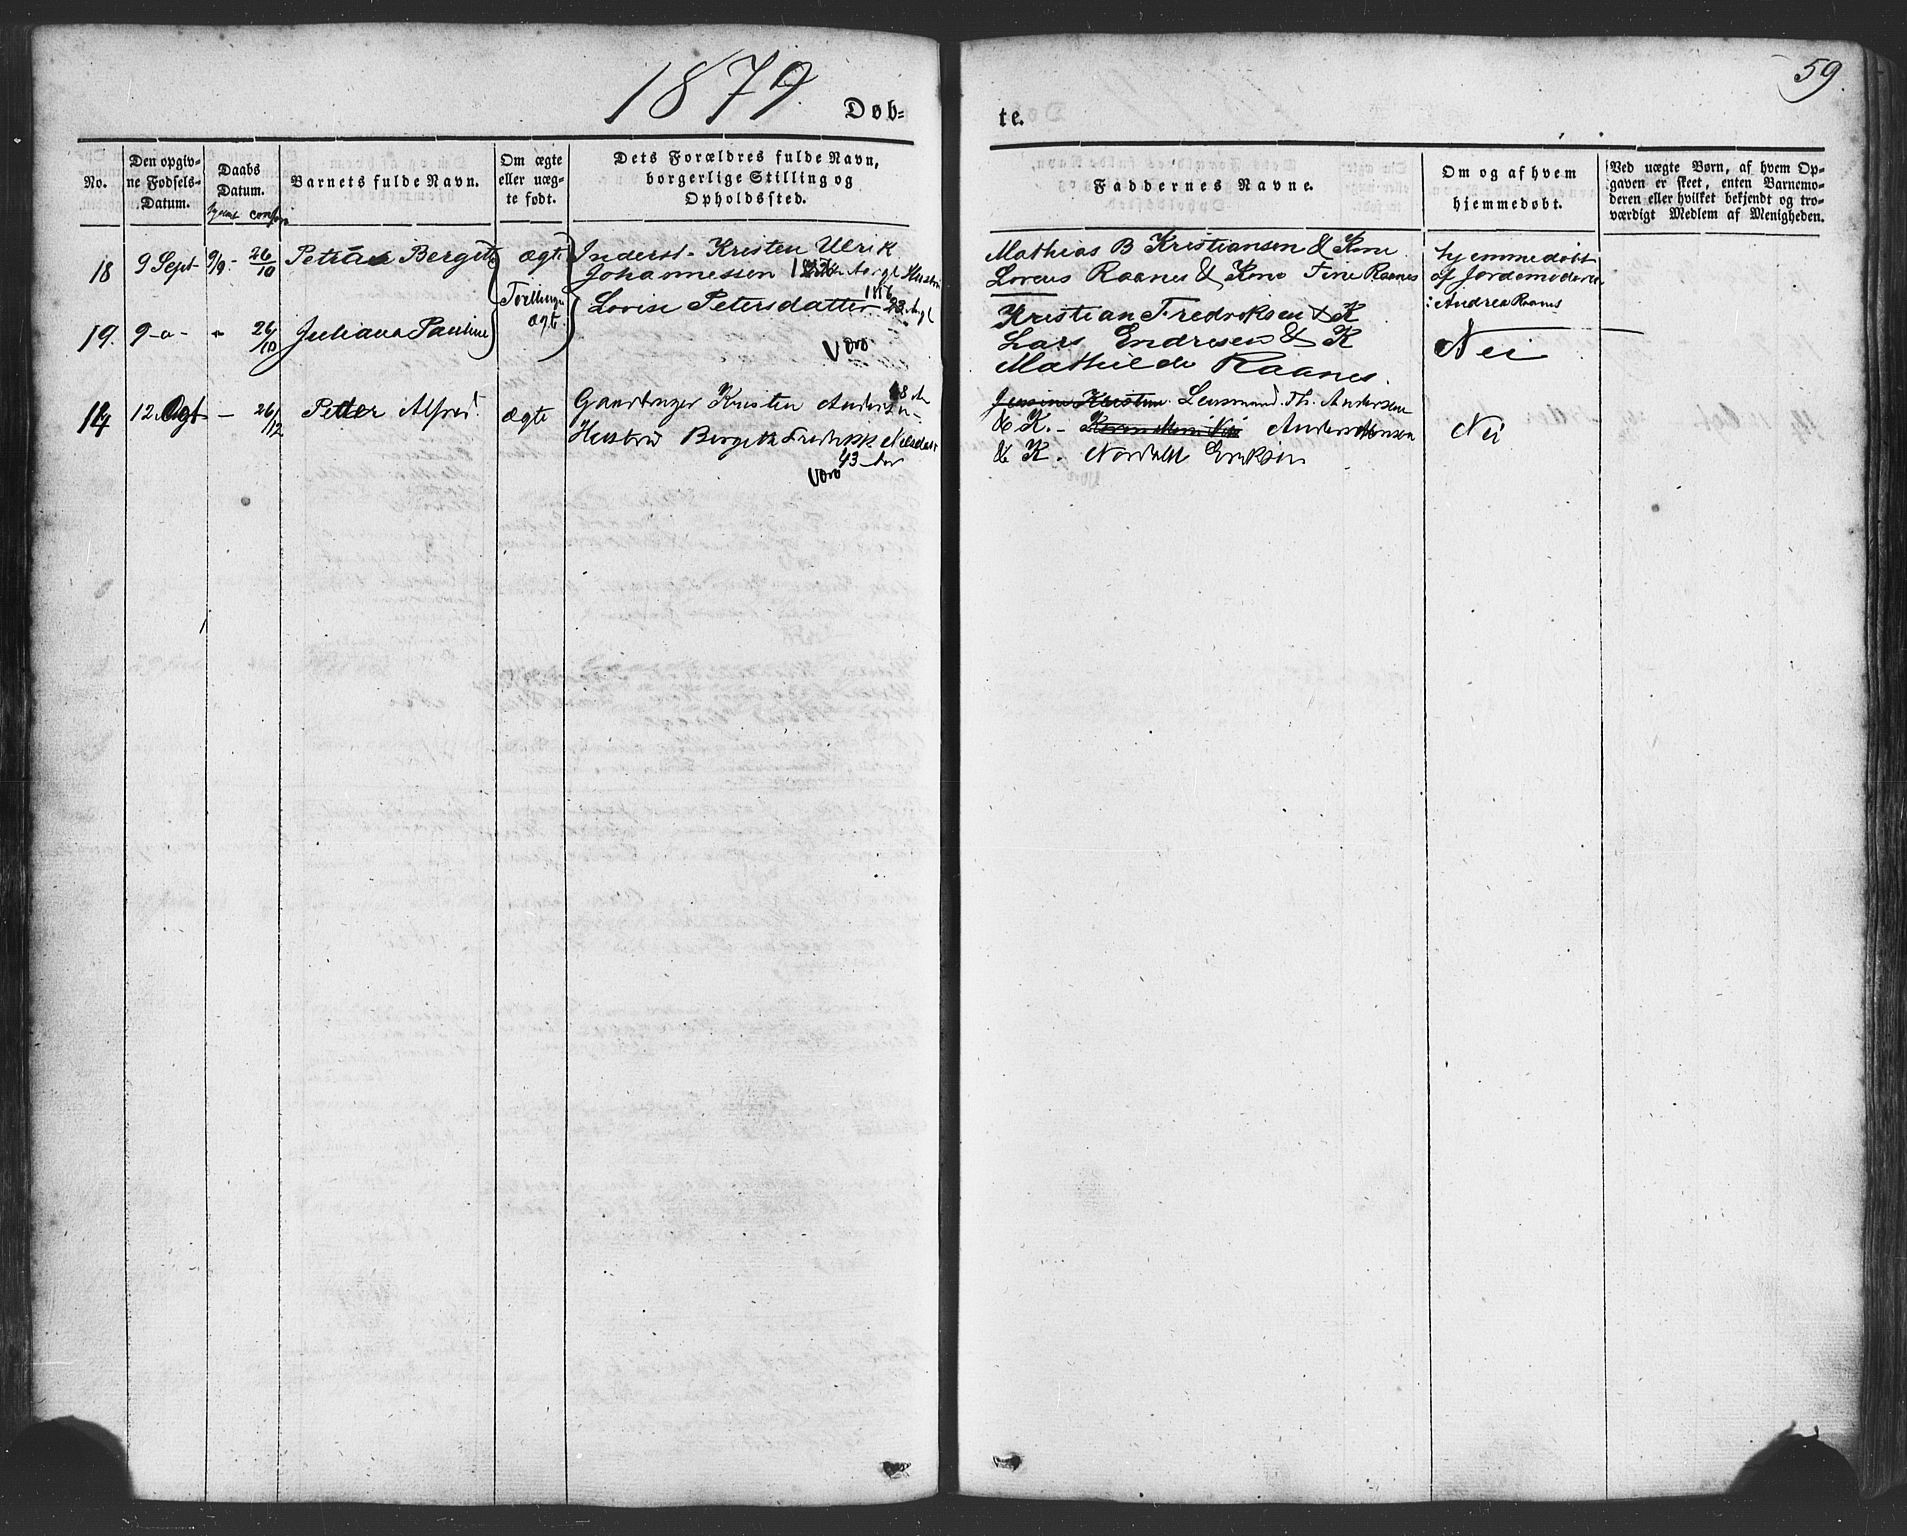 1879
59.
Døb=
te.
No.
Den opgiv-
ne Fødsels-
Datum.
Daabs
Datum.
Barnets fulde Navn.
Om ægte
eller uæg-
te født.
Dets Forældres fulde Navn,
borgerlige Stilling og
Opholdssted.
Faddernes Navne.
Om og af hvem
hjemmedøbt.
Ved uægte Børn, af hvem Op-
gaven er skeet, enten Barnemo-
deren eller hvilket bekjendt og tro-
værdigt Medlem af Menigheden.
18
9 Sept
9/9 - 26/10
Petra Bergitte
ægte
Tvillinger
Inderst - Kristen Ulrik
Johannessen
Lovise Petersdatter
Voro
Mathias B Kristiansen & Kone
Lorens Raanes & Kone Fine Raanes
hjemmedøbt
af Jordemoderen
Andrea Raanes
19.
9 -
26/10
Juliana Pauline
ægte
Kristian Fredriksen & K
Lars Endresen & K
Mathilde Raanes.
Nei
14
12
- 26/12
Petter Alfred
ægte
Gaardbruger Kristen Andersen
Hustru Bergitha Nilsdatter
43 Aar
Voro
Lensmand Th. Andersen
& K. - Anders
& K. Eriksen
Nei